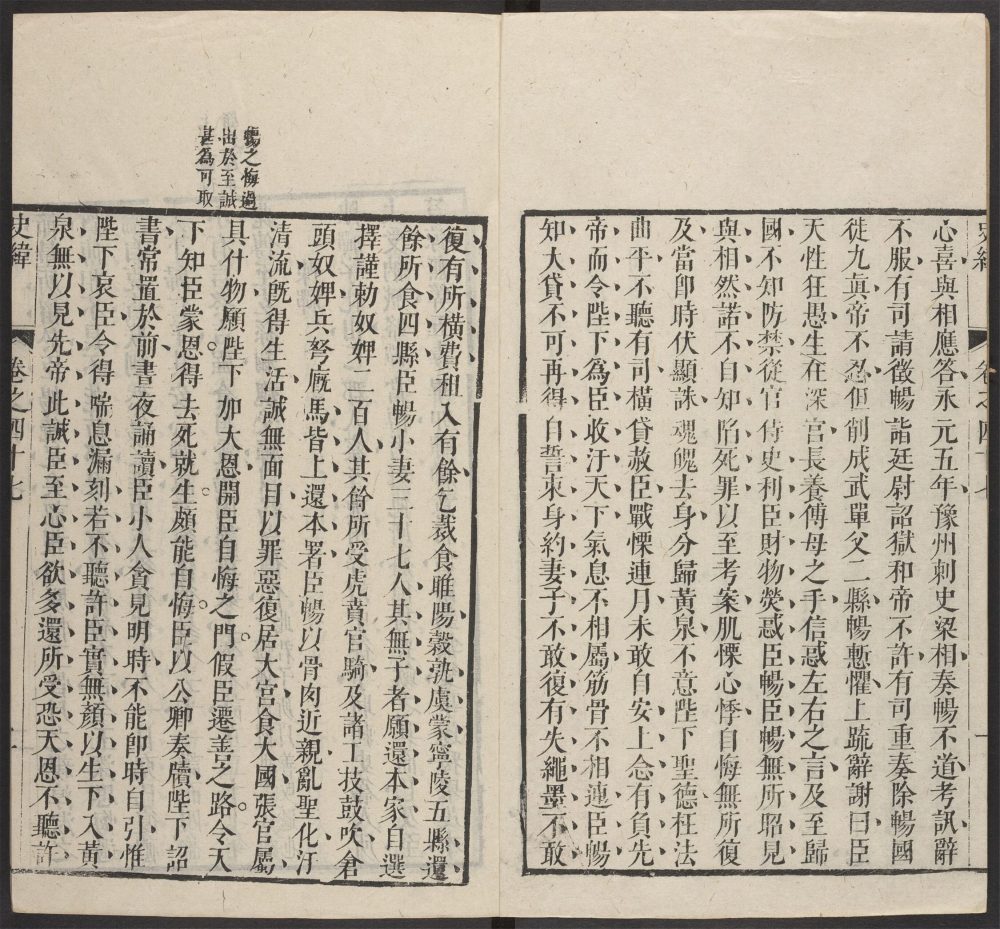 史緯 卷之四十七
心喜與相應答永元五年豫州刺史梁相奏暢不道考訊辭
不服有司請徵暢詣廷尉詔獄和帝不許有司重奏除暢國
徙九眞帝不忍但削成武單父二縣暢慙懼上疏辭謝曰臣
天性狂愚生在深宮長養傅母之手信惑左右之言及至歸
國不知防禁從官侍史利臣財物熒惑臣暢臣暢無所昭見
與相然諾不自知陷死罪以至考案肌慄心悸自悔無所復
及當卽時伏顯誅魂魄去身分歸黃泉不意陛下聖德枉法
曲平不聽有司橫貸赦臣戰慄連月未敢自安上念有負先
帝而令陛下爲臣收汙天下氣息不相屬筋骨不相連臣暢
知大貸不可再得自誓束身約妻子不敢復有失繩墨不敢
暢之悔過
出於至誠
甚爲可取
復有所橫費租入有餘乞裁食睢陽穀孰虞蒙寧陵五縣還
餘所食四縣臣暢小妻三十七人其無子者願還本家自選
擇謹勅奴婢二百人其餘所受虎賁官騎及諸工技鼓吹倉
頭奴婢兵弩廐馬皆上還本署臣暢以骨肉近親亂聖化汙
淸流旣得生活誠無面目以罪惡復居大宮食大國張官屬
具什物願陛下加大恩開臣自悔之門假臣遷善之路令天
下知臣蒙恩得去死就生頗能自悔臣以公卿奏牘陛下詔
書常置於前晝夜誦讀臣小人貪見明時不能卽時自引惟
陛下哀臣令得喘息漏刻若不聽許臣實無顏以生下入黃
泉無以見先帝此誠臣至心臣欲多還所受恐天恩不聽許
史緯 卷之四十七